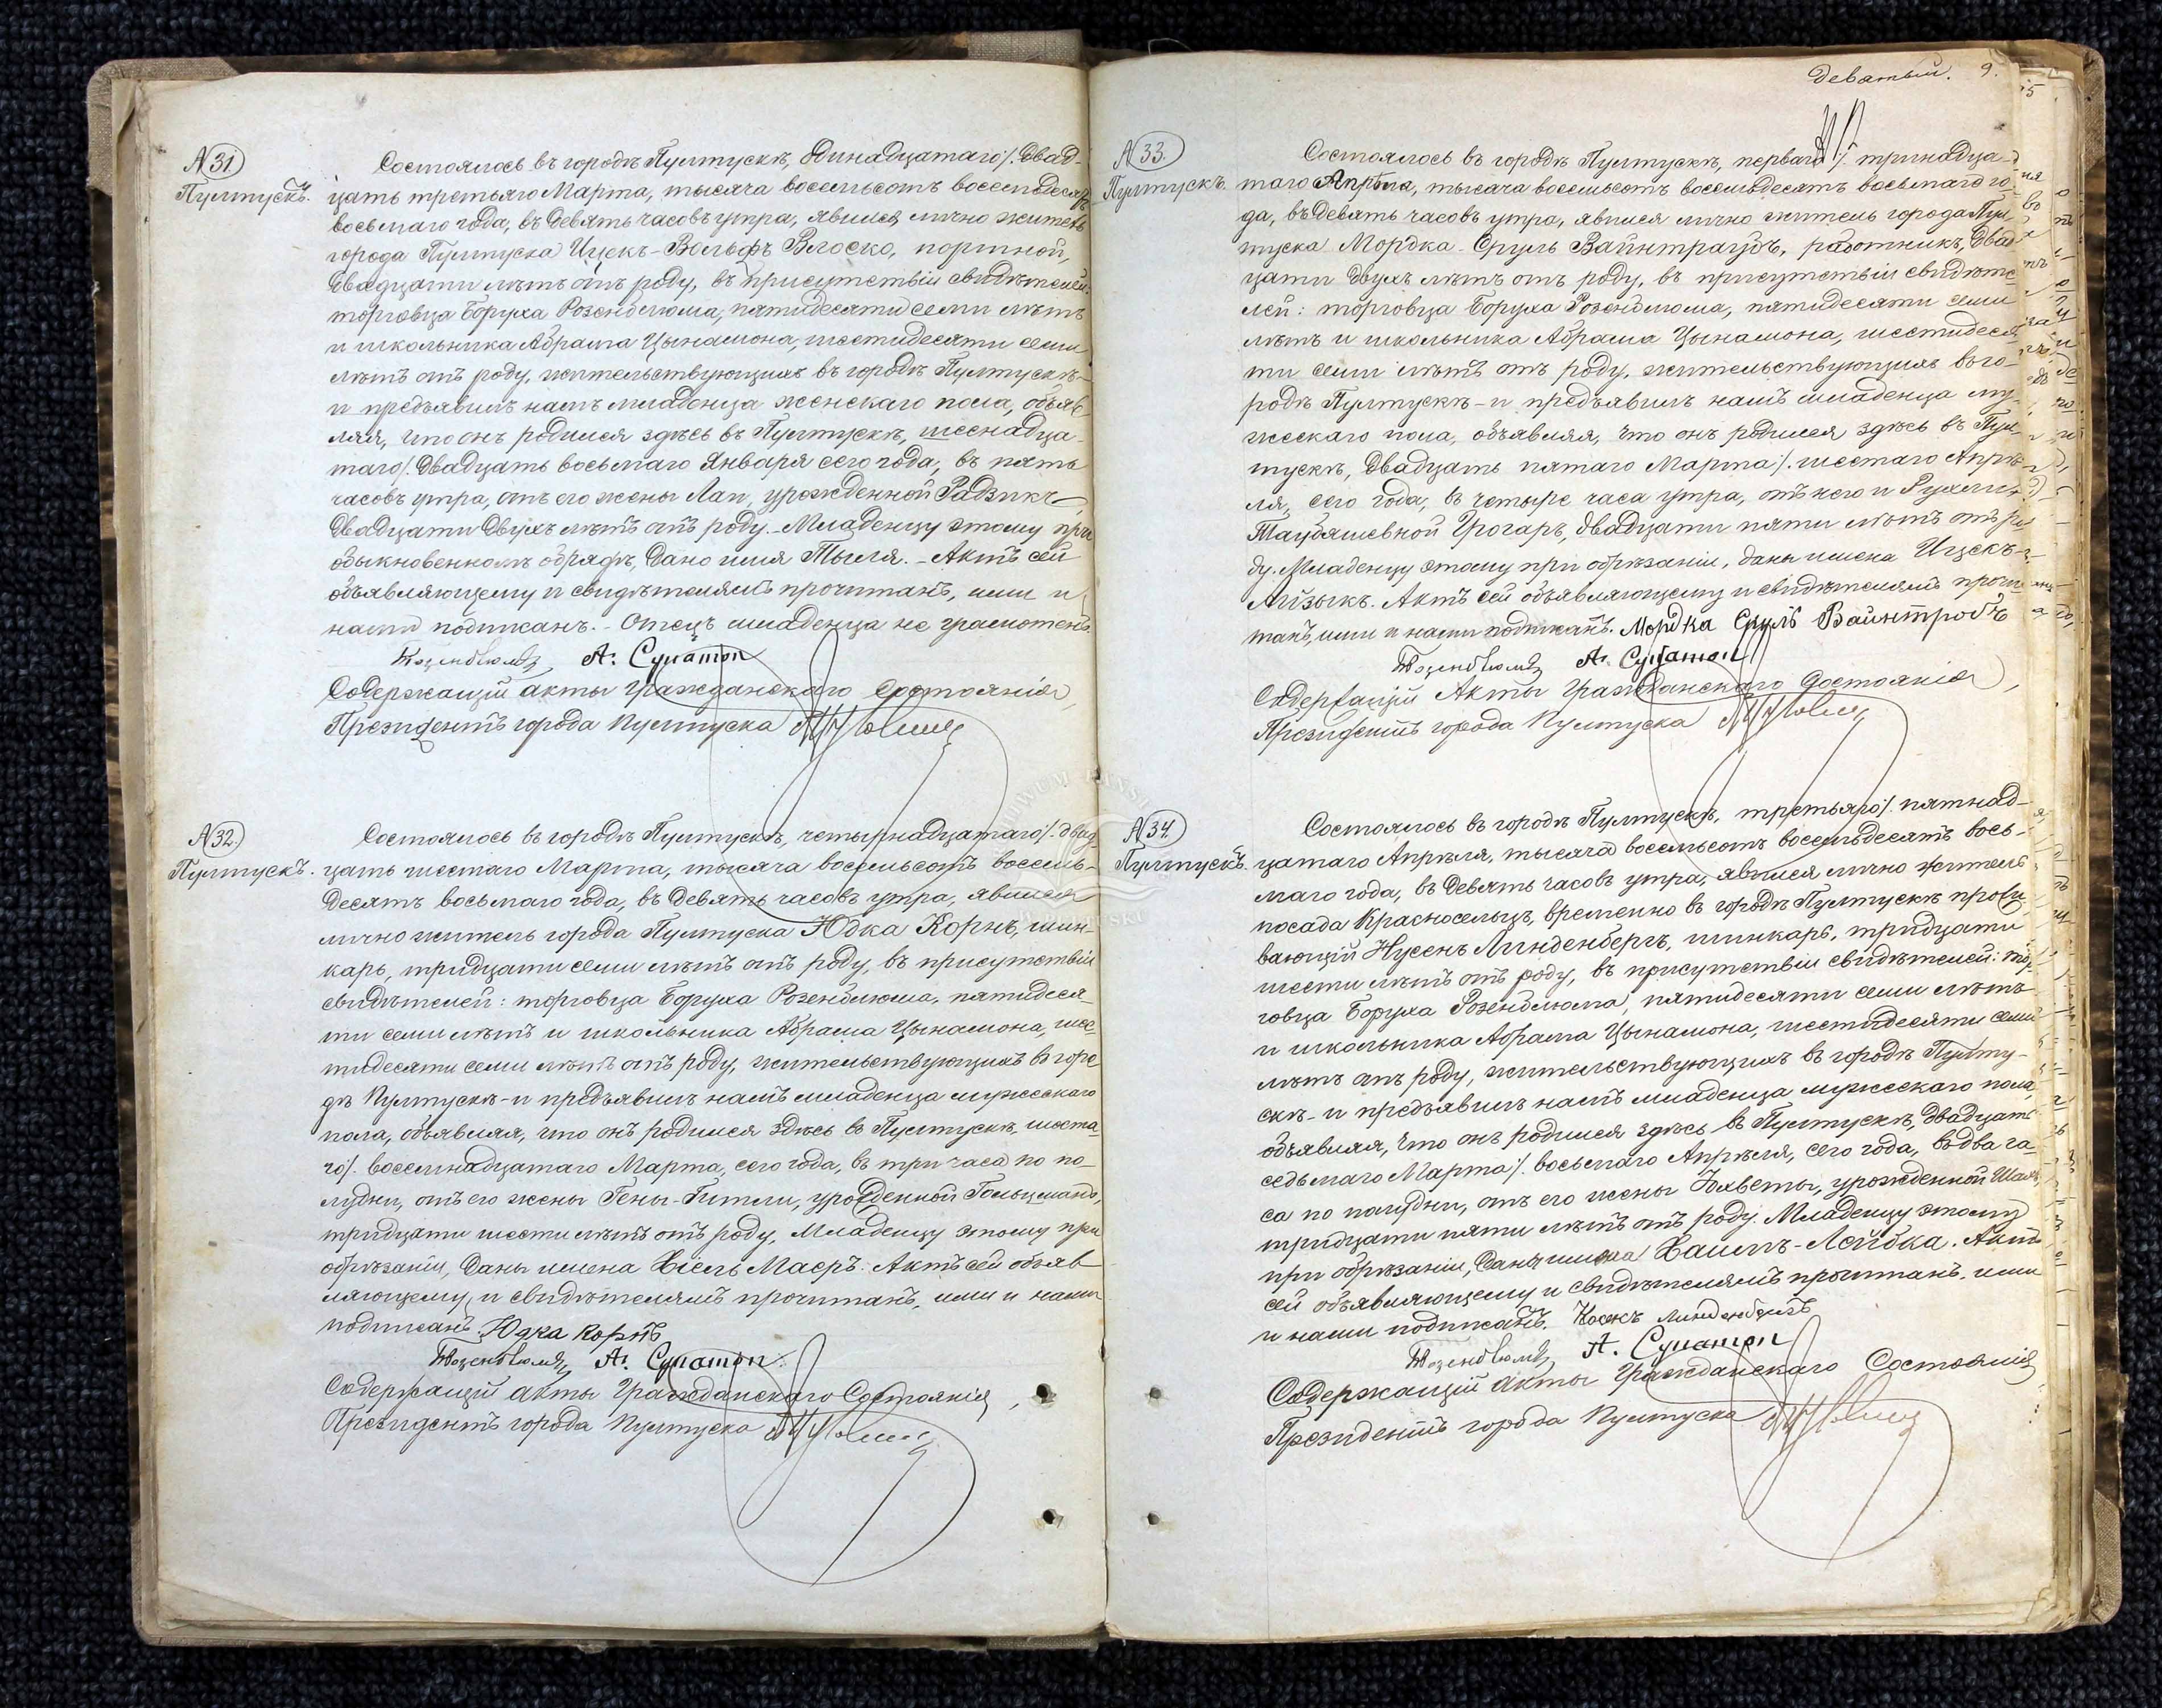 девятый. 9.
№ 31
Пултускъ.
Состоялось въ городѣ Пултускѣ, одинадцатаго/двад-
цать третьяго Марта, тысяча восемьсотъ восемьдесятъ
восьмаго года, въ девять часовъ утра, явился лично житель
города Пултуска Ицекъ-Вольфъ Влоско, портной,
двадцати лѣтъ отъ роду, въ присутствіи свидѣтелей:
торговца Боруха Розенблюма, пятидесяти семи лѣтъ
и школьника Абрама Цынамона, шестидесяти семи
лѣтъ отъ роду, жительствующихъ въ городѣ Пултускѣ-
и предъявилъ намъ младенца женскаго пола, объяв-
ляя, что онъ родился здѣсь въ Пултускѣ, шеснадца-
таго/двадцать восьмаго Января сего года, въ пять
часовъ утра, отъ его жены Лаи, урожденной
двадцати двухъ лѣтъ отъ роду. Младенцу этому при
обыкновенномъ обрядѣ, дано имя Тыля. - Актъ сей
объявляющему и свидѣтелямъ прочитанъ, ими и
нами подписанъ. - Отецъ младенца не грамотенъ.
Розенблюмъ, А. Сунатон
Содержащій акты гражданскаго состоянія,
Президентъ города Пултуска
№ 32.
Пултускъ.
Состоялось въ городѣ Пултускѣ, четырнадцатаго/двад-
цать шестаго Марта, тысяча восемьсотъ восемь-
десятъ восьмаго года, въ девять часовъ утра, явился
лично житель города Пултуска Юдка Корнъ, шин-
карь, тридцати семи лѣтъ отъ роду, въ присутствіи
свидѣтелей: торговца Боруха Розенблюма, пятидеся-
ти семи лѣтъ и школьника Абрама Цынамона, шес-
тидесяти семи лѣтъ отъ роду, жительствующихъ въ горо
дѣ Пултускѣ-и предъявилъ намъ младенца мужескаго
пола, объявляя, что онъ родился здѣсь въ Пултускѣ, шеста-
го/восемнадцатаго Марта, сего года, въ три часа по по-
лудни, отъ его жены Гены-Гитли, урожденной Гольцманъ,
тридцати шести лѣтъ отъ роду, Младенцу этому при
обрѣзаніи, даны имена Хіель Маеръ. Актъ сей объяв
ляющему и свидѣтелямъ прочитанъ, ими и нами
подписанъ. Юдка Корнъ
Розенблюмъ, А. Сунатон
Содержащій акты Гражданскаго Состоянія,
Президентъ города Пултуска
№ 33.
Пултускъ.
Состоялось въ городѣ Пултускѣ, перваго/тринадца-
таго Апрѣля, тысяча восемьсотъ восемьдесятъ восьмаго го-
да, въ девять часовъ утра, явился лично житель города Пул
туска Мордка-Сруль Вайнтраубъ, работникъ, двад
цати двухъ лѣтъ отъ роду, въ присутствіи свидѣте
лей: торговца Боруха Розенблюма, пятидесяти семи
лѣтъ и школьника Абрама Цынамона, шестидеся
ти семи лѣтъ отъ роду, жительствующихъ въ го-
родѣ Пултускѣ-и предъявилъ намъ младенца му-
жескаго пола, объявляя, что онъ родился здѣсь въ Пул
тускѣ, двадцать пятаго Марта/шестаго Апрѣ
ля, сего года, въ четыре часа утра, отъ него и Рухли
двадцати пяти лѣтъ отъ ро
ду. Младенцу этому при обрѣзаніи, даны имена Ицекъ-
Айзыкъ. Актъ сей объявляющему и свидѣтелямъ прочи
танъ, ими и нами подписанъ. Мордка Сруль Вайнтробъ
Розенблюмъ, А. Сунатон
Содержащій Акты Гражданскаго Состоянія,
Президентъ города Пултуска
№ 34.
Пултускъ.
Состоялось въ городѣ Пултускѣ, третьяго/пятнад-
цатаго Апрѣля, тысяча восемьсотъ восемьдесятъ вось-
маго года, въ девять часовъ утра, явился лично житель
посада Красносельцъ, временно въ городѣ Пултускѣ прожи
вающій Нусенъ Линденбергъ, шинкарь, тридцати
шести лѣтъ отъ роду, въ присутствіи свидѣтелей: тор-
говца Боруха Розенблюма, пятидесяти семи лѣтъ
и школьника Абрама Цынамона, шестидесяти семи
лѣтъ отъ роду, жительствующихъ въ городѣ Пулту-
скѣ-и предъявилъ намъ младенца мужескаго пола,
объявляя, что онъ родился здѣсь въ Пултускѣ, двадцать
седьмаго Марта/восьмаго Апрѣля, сего года, въ два ча-
са по полудни, отъ его жены урожденной
тридцати пяти лѣтъ отъ роду. Младенцу этому
при обрѣзаніи, даны имена Хаимъ-Лейбка. Актъ
сей объявляющему и свидѣтелямъ прочитанъ, ими
и нами подписанъ. Линденбергъ
Розенблюмъ, А. Сунатон
Содержащій акты Гражданскаго Состоянія
Президентъ города Пултуска